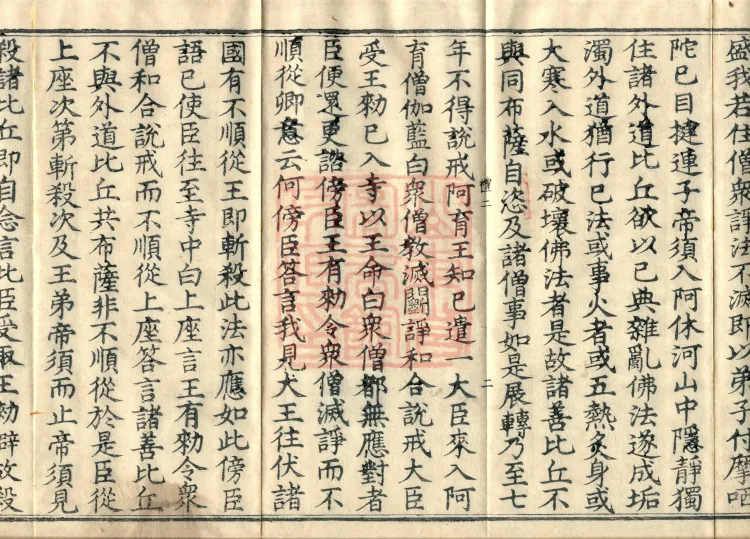 盛我若住僧衆諍法不滅即以弟子付摩哂
陀已目揵連子帝須入阿休河山中隱靜獨
住諸外道比丘欲以已典雜亂佛法遂成垢
濁外道猶行已法或事火者或五熱炙身或
大寒入水或破壞佛法者是故諸善比丘不
與同布薩自恣及諸僧事如是展轉乃至七
二
年不得說戒阿育王知已遣一大臣來入阿
育僧伽藍白衆僧教滅鬪諍和合說戒大臣
受王勑已入寺以王命白衆僧都無應對者
臣便還更諮傍臣王有勑令衆僧滅諍而不
順從卿意云何傍臣答言我見大王往伏諸
國有不順從王即斬殺此法亦應如此傍臣
語已使臣往至寺中白上座言王有勑令衆
僧和合說戒而不順從上座答言諸善比丘
不與外道比丘共布薩非不順從於是臣從
上座次第斬殺次及王弟帝須而止帝須見
殺諸比丘即自念言此臣受取王勑僻故殺